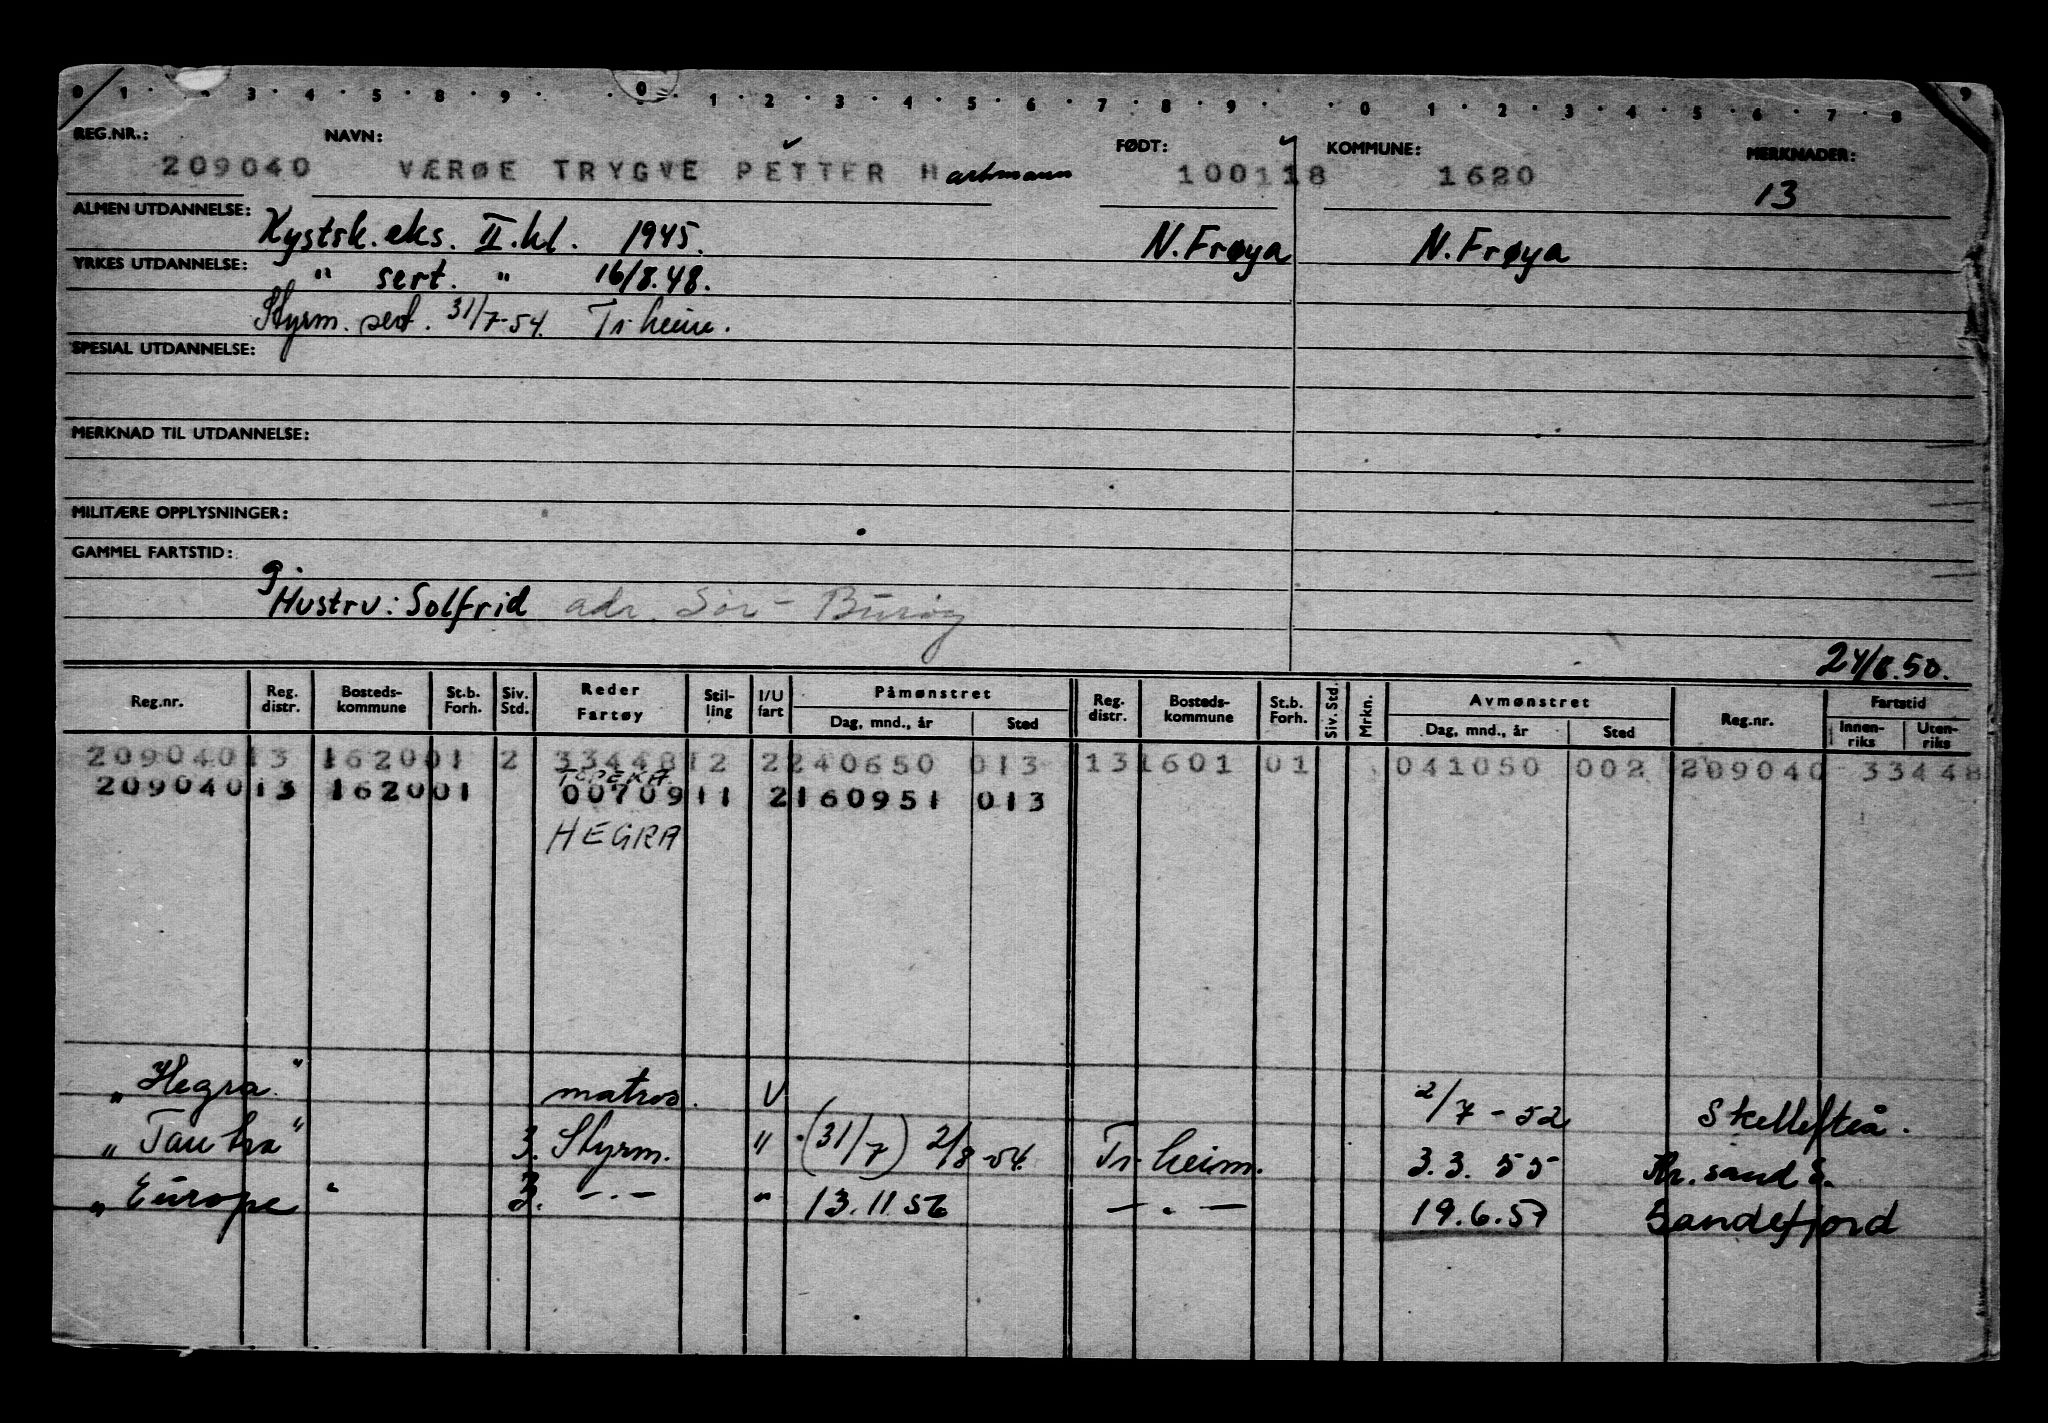 0 1 · · 3 · 4 · 5 · 8 · 9 · · 0 · 1 · 2 · 3 · 4 · 5 · 6 · 7 · 8 · 9 · · 0 · 1 · 2 · 3 · 4 · 5 · 6 · 7 · 8 9
REG.NR.: NAVN: FØDT: KOMMUNE: MERKNADER:
209040 VÆRØE TRYGVE PETTER Hartmann 100118 1620 13
ALMEN UTDANNELSE: Kystsk. eks. II. kl. 1945. N. Frøya N. Frøya
YRKES UTDANNELSE: " sert. " 16/8.48.
Styrm. sert. 31/7-54. Tr.heim.
SPESIAL UTDANNELSE:
MERKNAD TIL UTDANNELSE:
MILITÆRE OPPLYSNINGER:
GAMMEL FARTSTID:
g.
Hustru: Solfrid adr. Sør-
24/8.50.
Reg.nr. Reg. distr. Bosteds-kommune St.b. Forh. Siv. Std. Reder Fartøy Stil-ling I/U fart Påmønstret Dag, mnd., år Sted Reg. distr. Bosteds-kommune St.b. Forh. Siv. Std. Mrkn. Avmønstret Dag, mnd., år Sted Reg.nr. Fartstid Innen-riks Uten-riks
209040 13 1620 01 2 33448 12 2 240650 013 13 1601 01 041050 002 209040 33448
TOPEKA
209040 13 1620 01 00709 11 2 160951 013
HEGRA
"Hegra" matros. U 2/7-52 Skellefteå.
"Tautra" 3. Styrm. " (31/7) 2/8-54. Tr.heim. 3.3.55 Kr.sand S.
"Europe" 3. -.- " 13.11.56 -.- 19.6.57 Sandefjord